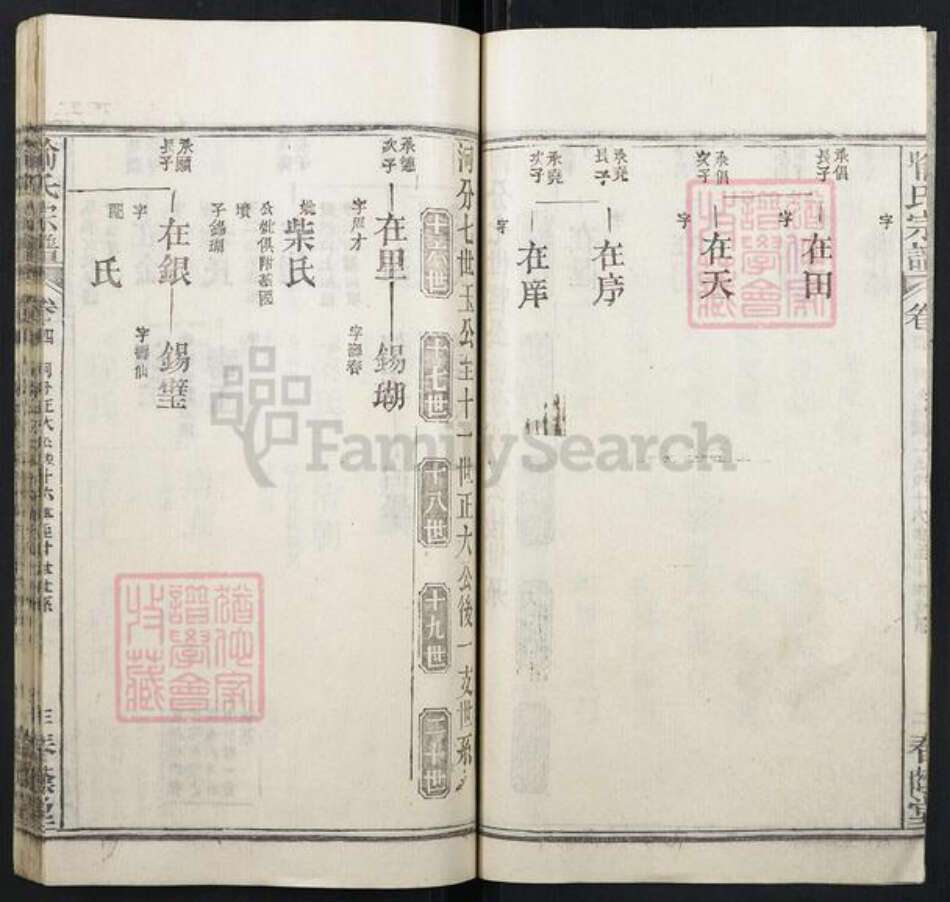 字
承俱
長子
在田
字
承俱
次子
在天
字
承堯
長子
在序
承堯
次子
在庠
字
河分七世玉公至十一世正大公後一支世系
十六世
十七世
十八世
十九世
二十世
承德
次子
在里
字殿才
錫瑚
字海春
妣
柴氏
公妣俱附基園
墳
子錫瑚
承願
長子
在銀
字
配
氏
錫瑩
字壽仙
宗譜
卷四
三
春蔭堂
譜學會
收藏
FamilySearch